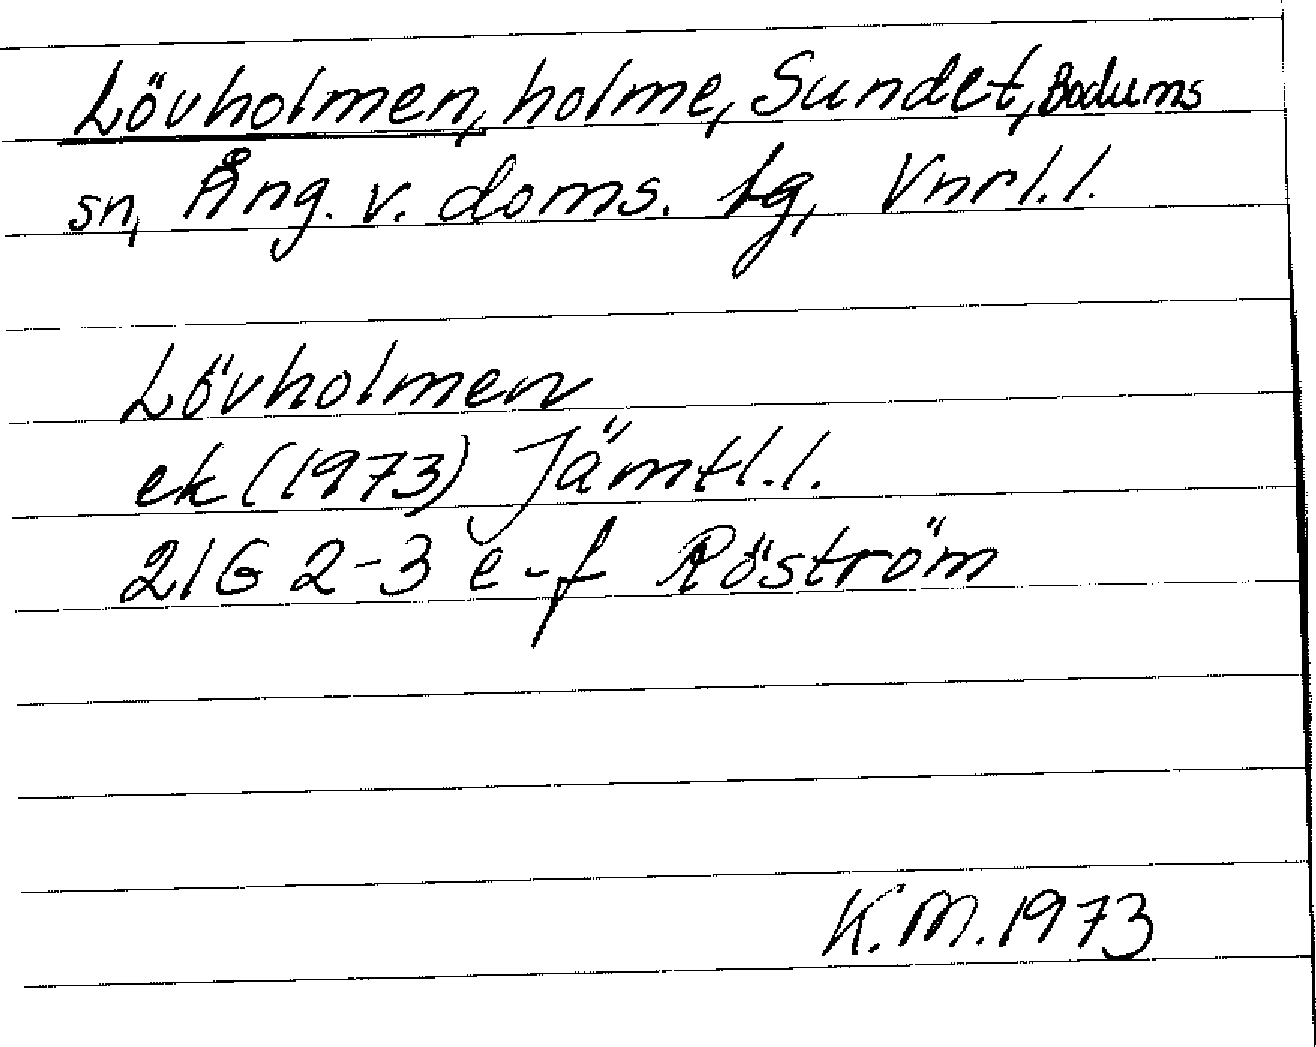 Lövholmen, holme, Sundet, Bodums
sn, Ång. v. doms. tg, Vnrl.l.
Lövholmen
ek (1973) Jämtl.l.
21G 2-3 e-f Röström
K.M. 1973